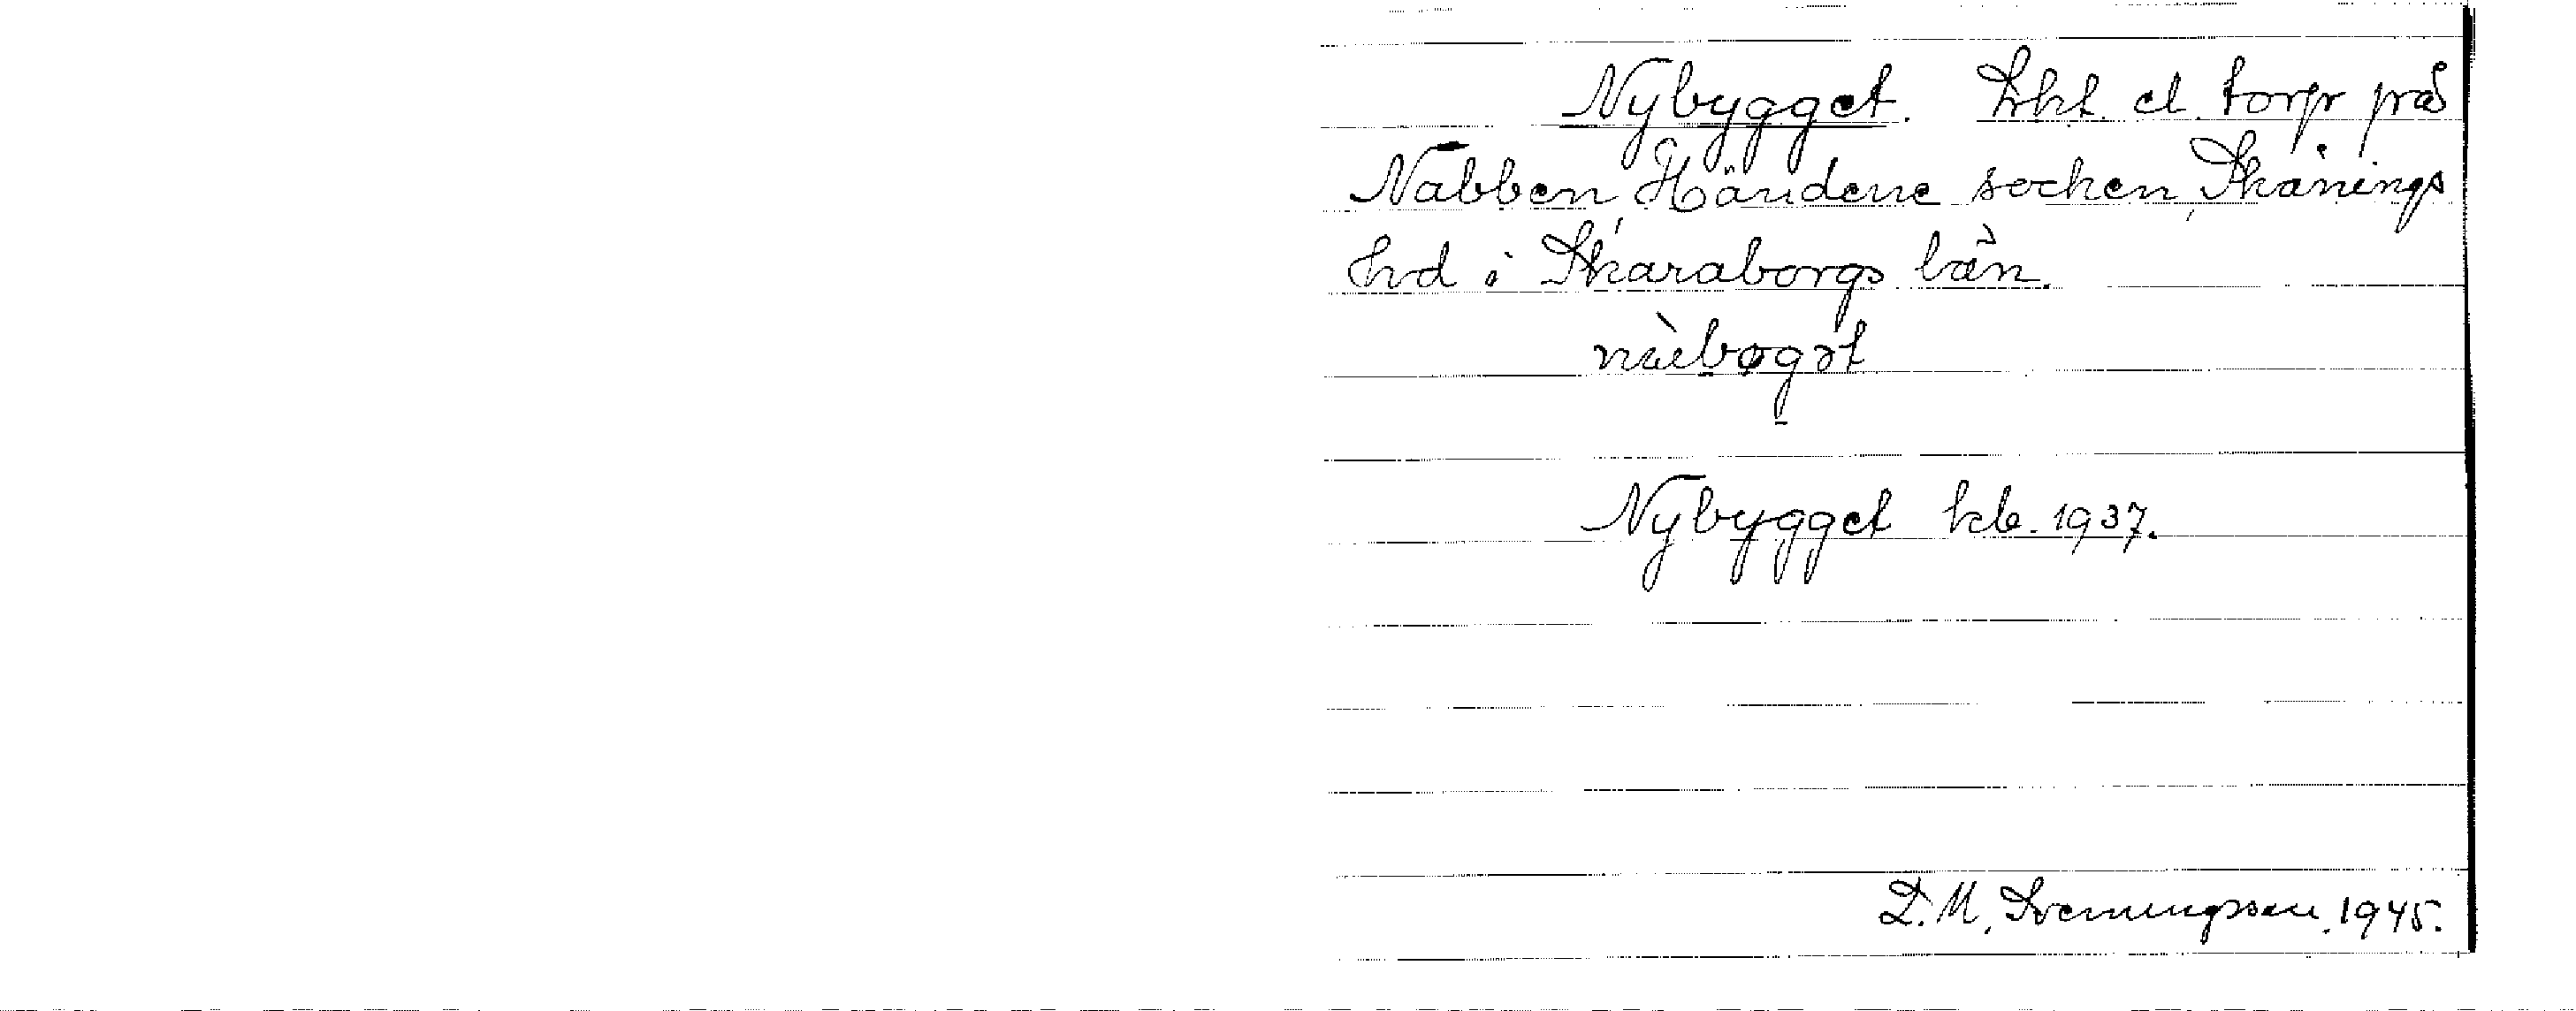 Nybygget. Lht. el. torp på
Nabben, Händene socken, Skånings
hd i Skaraborgs län.
Nybygget kb. 1937.
D. M. Svenungsson 1945.